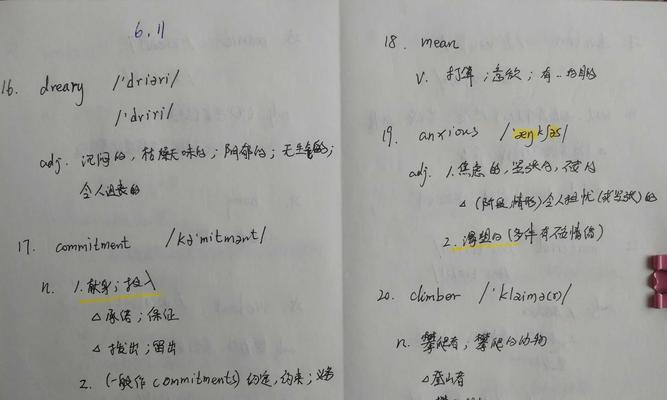 6.11
16. dreary /'driəri/
/'driri/
adj. 沉闷的,枯燥无味的;阴郁的;无生气的;
令人沮丧的
17. commitment /kə'mitmənt/
n. 1.献身;投入
△承诺;保证
△拨出;留出
2. (一般作 commitments) 约定,约束;义务
18. mean
v. 打算;意欲;有..的目的
19. anxious /'æŋkʃəs/
adj. 1.焦虑的,紧张的,不安的
△(阶段,情形)令人担忧(或紧张)的
2.渴望的(多伴有不安情绪)
20. climber /'klaimə(r)/
n. 攀爬者,攀爬的动物
△登山者